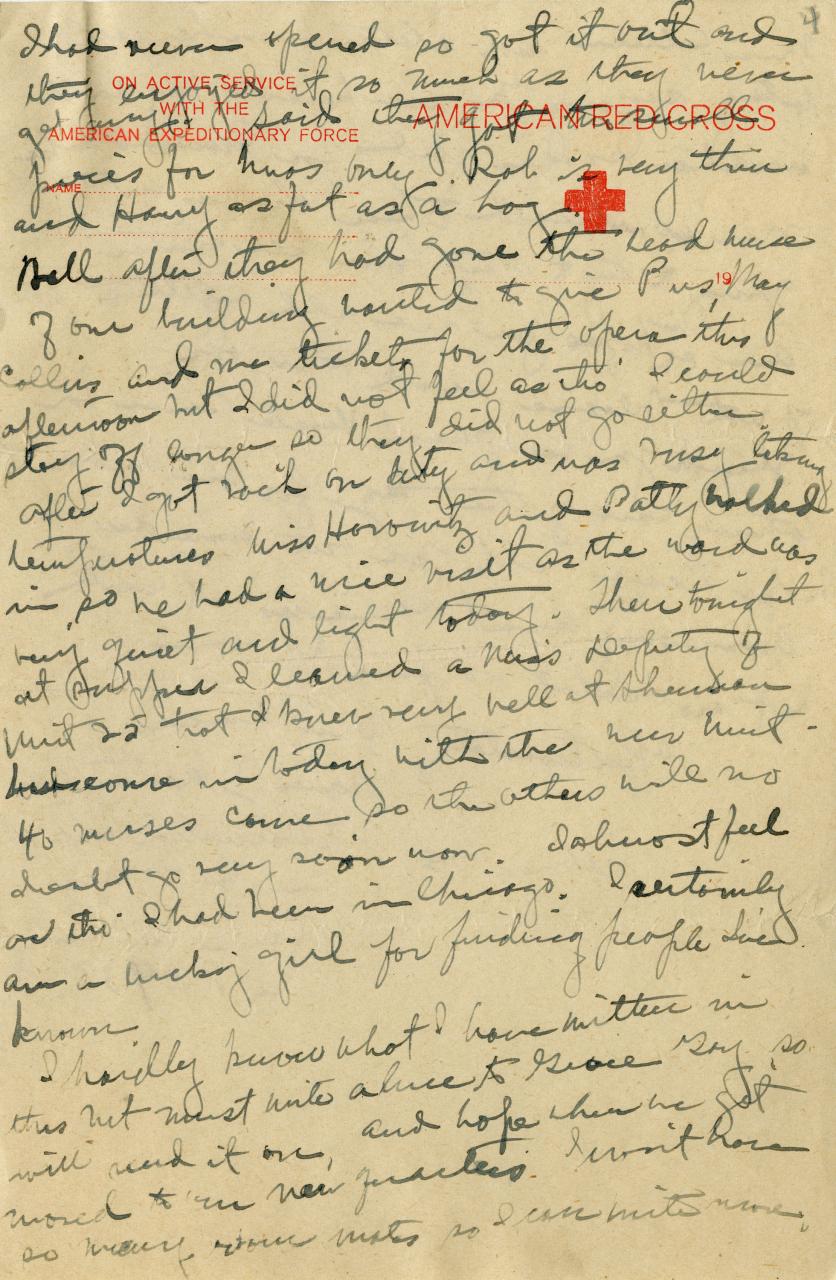 4
I had never opened so got it out and
they enjoyed it so much as they never
get any. I said they got the small
ON ACTIVE SERVICE
WITH THE
AMERICAN EXPEDITIONARY FORCE
AMERICAN RED CROSS
NAME
19
for only. Rob is very thin
and Harry as fat as a hog.
Well after they had gone the head nurse
of our building wanted to give P us, May
Collins and me tickets for the opera this
afternoon but I did not feel as tho' I could
stay off longer so they did not go either
after I got back on duty and was busy taking
temperatures Miss Horowitz and Patty walked
in, so we had a nice visit as the ward was
very quiet and light today. Then tonight
at supper I learned a Miss Deputy of
Unit 25 that I knew very well at Sherman
had come in today with the new Unit -
40 nurses came so the others will no
doubt go very soon now. I almost feel
as tho' I had been in Chicago. I certainly
am a lucky girl for finding people I've
known
I hardly know what I have written in
this but must write a line to Grace Gay so
will send it on, and hope when we get
moved to our new quarters I won't have
so many room mates so I can write more.